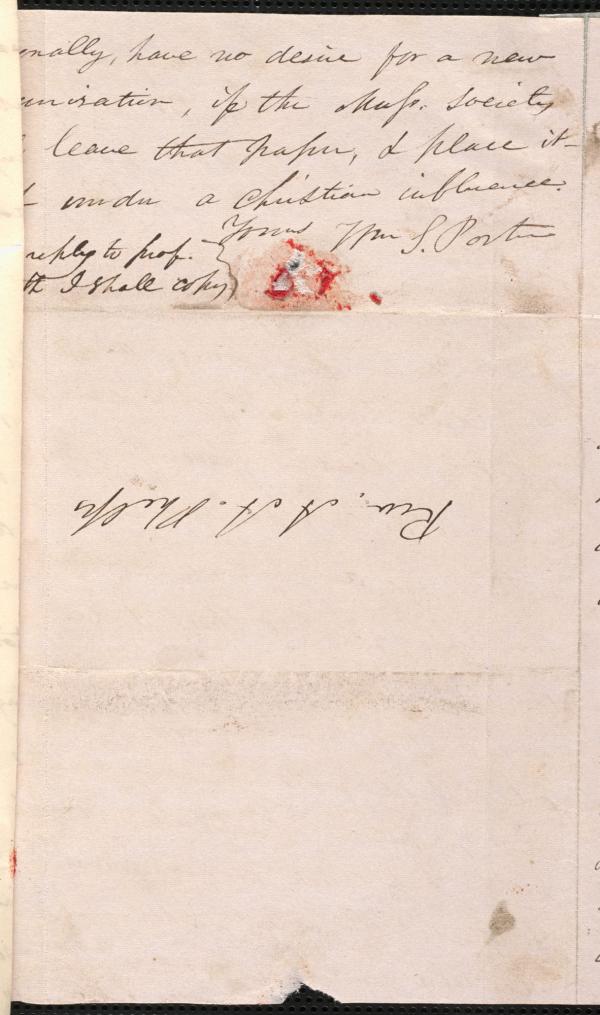 onally, have no desire for a new
anization, if the Mass. Society
leave that paper, & place it-
under a Christian influence.
Yours Wm S. Porter
reply to prof.
th I shall copy
Rev. A A. Phelps